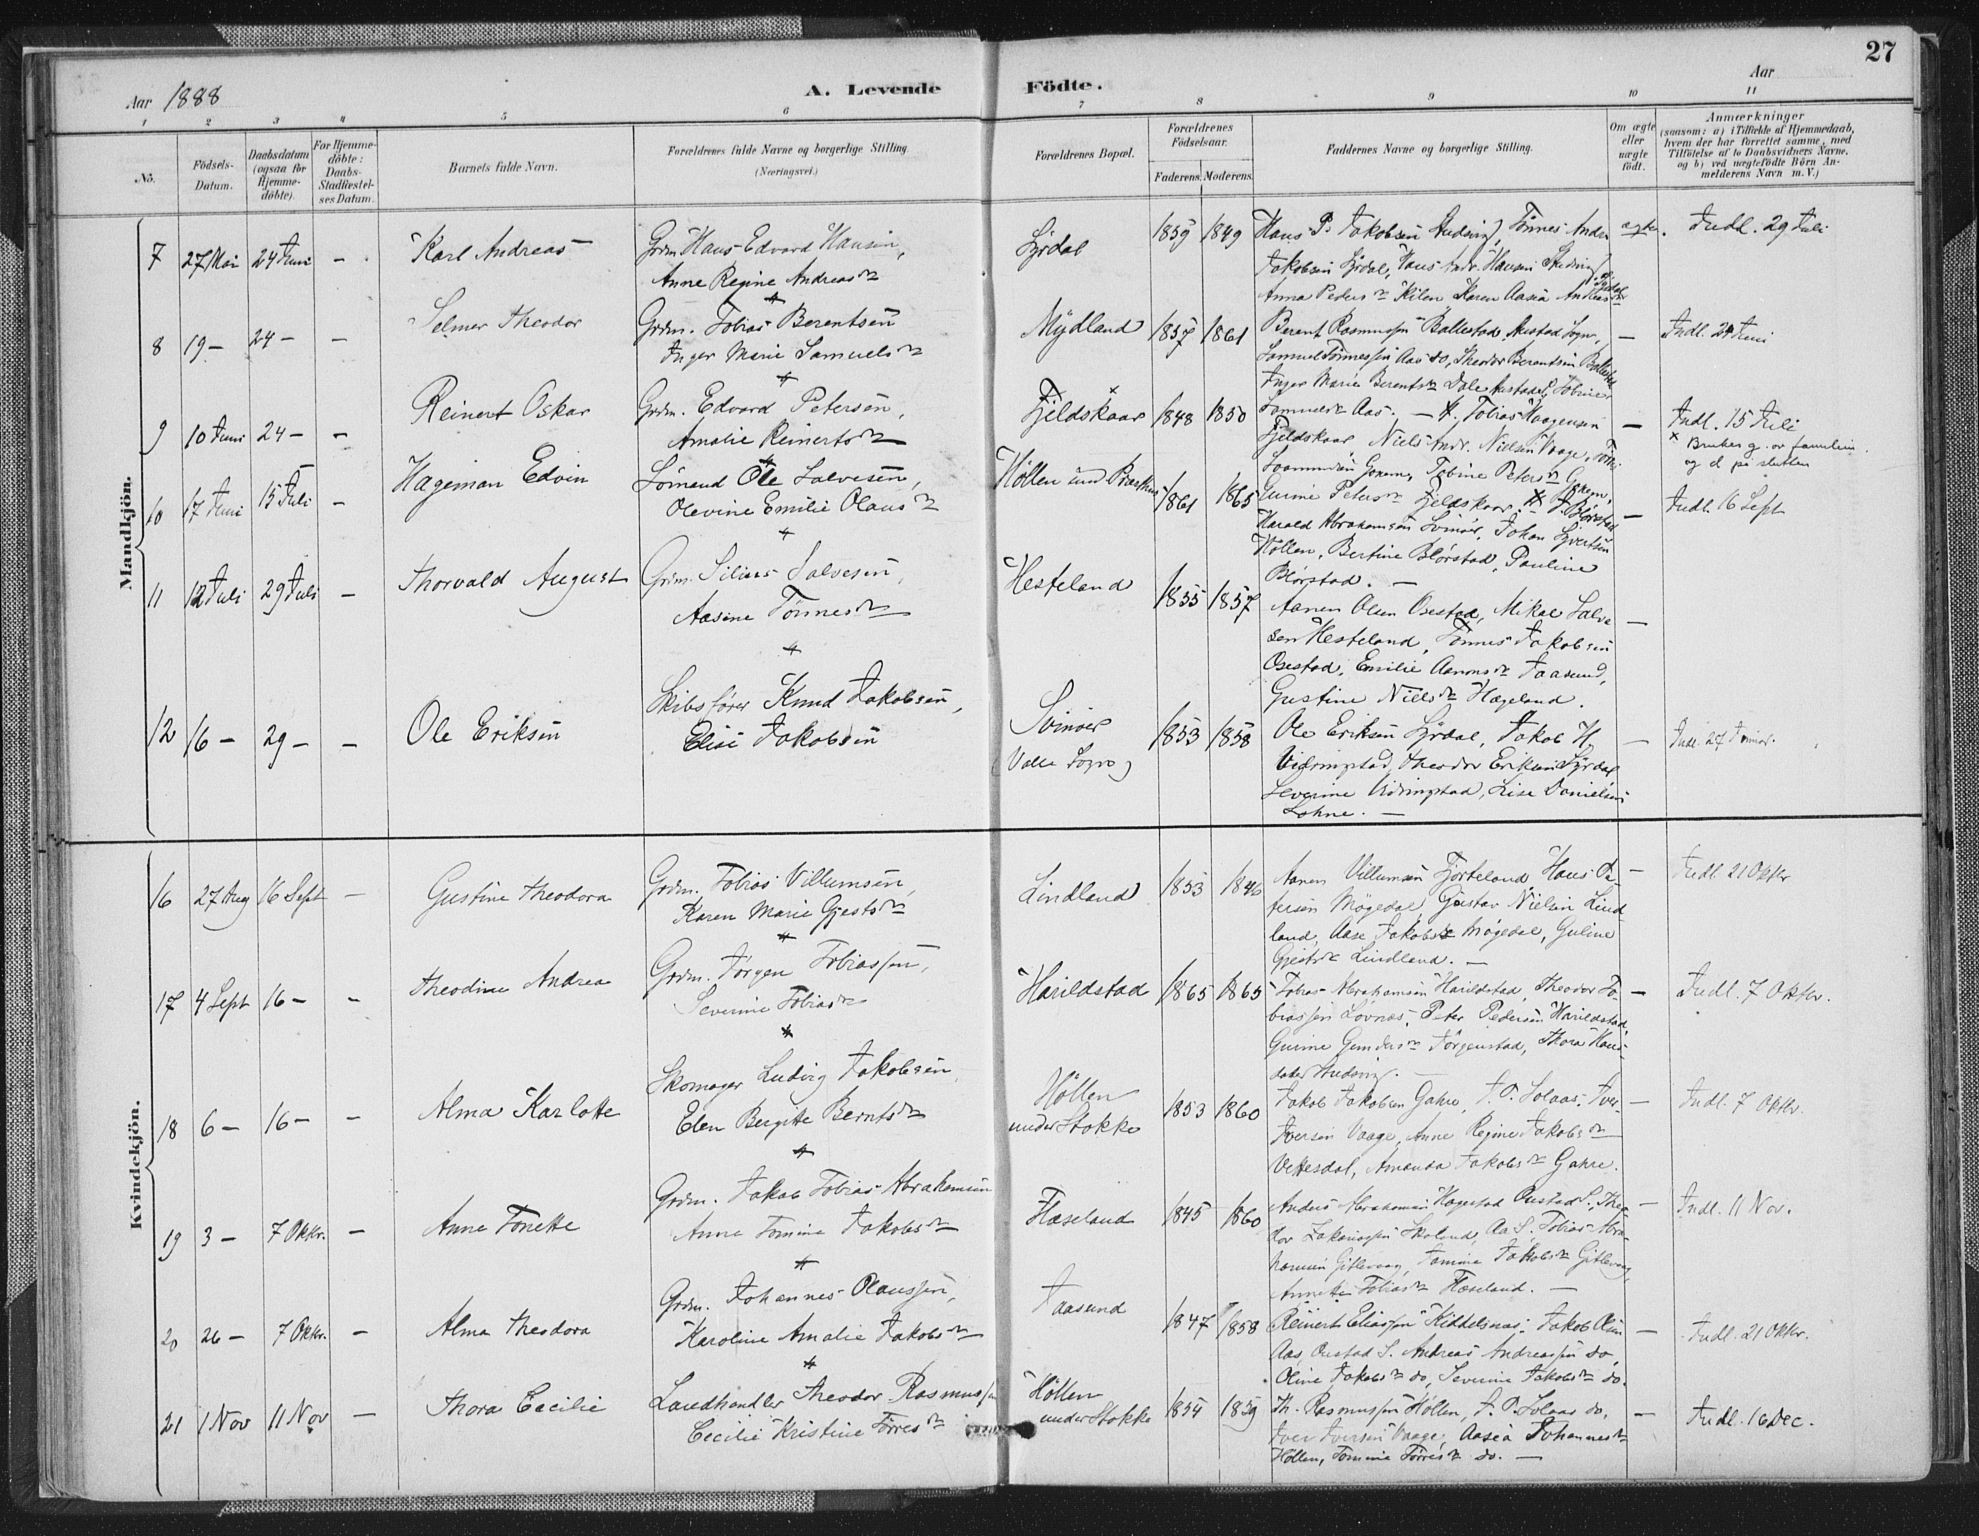 27
Aar 1888
A. Levende Födte.
Aar
1 2 3 4 5 6 7 8 9 10 11
No.
Födsels-Datum.
Daabsdatum (ogsaa for Hjemme-döbte)
For Hjemme-döbte: Daabs-Stadfæstel-ses Datum.
Barnets fulde Navn.
Forældrenes fulde Navne og borgerlige Stilling (Næringsvei.)
Forældrenes Bopæl.
Forældrenes Födselsaar.
Faderens. Moderens.
Faddernes Navne og borgerlige Stilling.
Om ægte eller uægte födt.
Anmærkninger
(saasom: a) i Tilfælde af Hjemmedaab, hvem der har forrettet samme, med Tilföielse af to Daabsvidners Navne, og b) ved uægtefödte Börn An-melderens Navn m.V.)
Mandkjön.
7 27 Mai 24 Juni – Karl Andreas
Grdm. Hans Edvard Hansen,
Anne Regine Andreasdr
Syrdal 1859 1849
Hans P. Jakobsen Tønnes Andr.
Jakobsen Syrdal, Hans Andr. Hansen
Anna Pedersdr Kilen Karen Aasea Andreasdr
ægte. Indl. 29 Juli
8 19 – 24 – – Selmer Theodor
Grdm. Tobias Berentsen
Inger Marie Samuelsdr
Mydland 1857 1861
Berent Rasmussen Ballestad Sogn,
Samuel Tønnessen Aas do, Theodor Berentsen Ballestad
Inger Marie Berentsdr Dale
– Indl. 24 Juni
9 10 Juni 24 – – Reinert Oskar
Grdm. Edvard Petersen,
Amalie Reinertsdr
Fjeldskaar 1848 1850
Aas. – Tobias Haagensen
Fjeldskaar Niels Andr. Nielsen Vaage,
Tobine Petersdr
– Indl. 15 Juli
x Brukes g. av familien
og d på slutten
10 17 Juni 15 Juli – Hageman Edvin
Sømand Ole Salvesen,
Olevine Emilie Olausdr
Høllen und 1861 1865
Gurine Petersdr Fjeldskaar.
Harald Abrahamsen Svinøer, Johan Syvertsen
Høllen, Bertine Blørstad, Pauline
Blørstad. –
– Indl. 16 Sept
11 12 Juli 29 Juli – Thorvald August
Grdm. Silius Salvesen,
Aasine Tønnesdr
Hesteland 1855 1857
Aanen Olsen Osestad, Mikal Salve-
sen Hesteland, Tønnes Jakobsen
Osestad, Emilie Aanonsdr Taasund,
Gustine Nielsdr Hægeland.
–
12 16 – 29 – – Ole Eriksen
Skibsfører Knud Jakobsen,
Elise Jakobsen
Svinøer
(Valle Sogn)
1853 1858
Ole Eriksen Syrdal, Jakob H
Vidringstad, Theodor Eriksen Syrdal
Severine Vidringstad, Lise Danielsen
Lohne. –
– Indl. 27
Kvindekjön.
16 27 Aug 16 Sept – Gustine Theodora
Grdm. Tobias Villumsen,
Karen Marie Gjestsdr
Lindland 1853 1846
Aanen Villumsen Fjorteland Hans Pe-
tersen Møgedal, Gustav Nielsen Lind-
land, Aase Jakobsdr Møgedal, Guline
Gjestsdr Lindland. –
– Indl. 21 Oktbr
17 4 Sept 16 – – Theodine Andrea
Grdm. Jørgen Tobiassen,
Severine Tobiasdr
Harildstad 1865 1865
Tobias Abrahamsen Harildstad, Theodor To-
biassen Løvnæs, Peter Pedersen Harildstad,
Gurine Gundersdr Jørgenstad, Thora Hans-
datter
– Indl. 7 Oktbr.
18 6 – 16 – – Alma Karlotte
Skomager Ludvig Jakobsen,
Elen Bergitte Berntsdr
Høllen
under Stokke
1853 1860
Jakob Jakobsen Gahre, J. P. Solaas, Iver
Iversen Vaage, Anne Regine Jakobsdr
Vettesdal, Amanda Jakobsdr Gahre.
– Indl. 7 Oktbr.
19 3 – 7 Oktbr. – Anne Tonette
Grdm. Jakob Tobias Abrahamsen
Anne Tomine Jakobsdr
Hæseland 1845 1860
Anders Abrahamsen Hogstad S, Theo-
dor Zakariassen Skoland, Aa S, Tobias Abra-
hamsen Gitlevaag, Tomine Jakobsdr Gitlevaag,
Tobiasdr Hæseland. –
– Indl. 11 Nov.
20 26 – 7 Oktbr. – Alma Theodora
Grdm. Johannes Olaussen,
Karoline Amalie Jakobsdr
Taasund 1847 1858
Reinert Eliassen Kiddelsnæs, Jakob Olsen
Aas, S. Andreas Andreassen do,
Oline Jakobsdr do, Severine Jakobsdr do.
– Indl. 21 Oktbr.
21 1 Nov 11 Nov – Thora Cecilie
Landhandler Theodor Rasmussen
Cecilie Kristine Tørresdr
Høllen
under Stokke
1854 1859
Th. Rasmussen Høllen, J. P. Solaas do,
Iver Iversen Vaage, Aasea Johannesdr
Høllen, Tomine Tørresdr do. –
– Indl. 16 Dec.